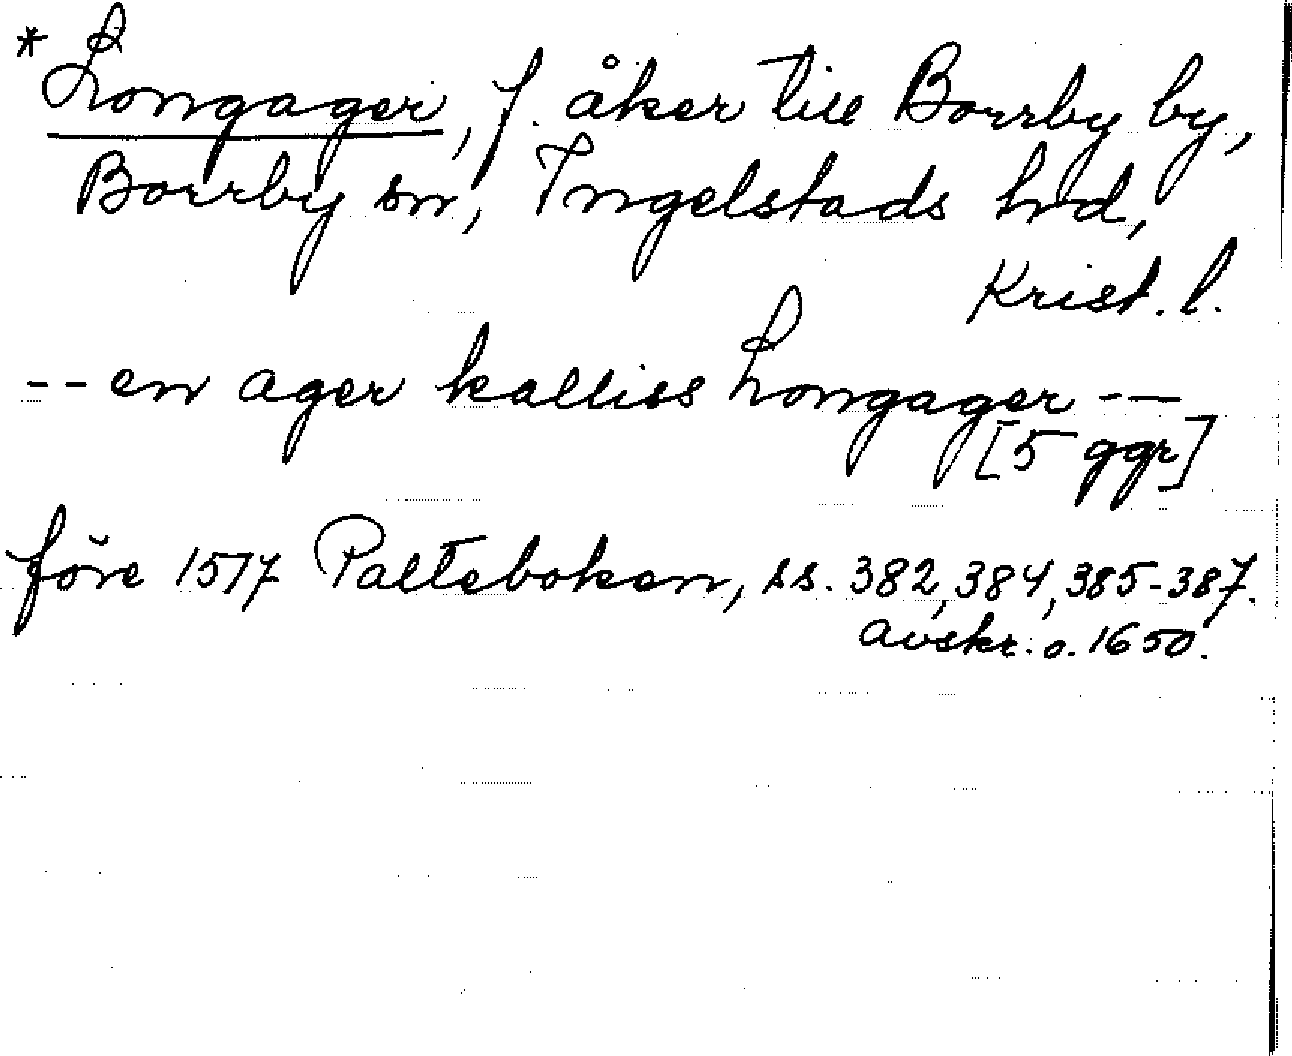 * Longager, f. åker till Borrby by,
Borrby sn, Ingelstads hrd,
Krist. l.
-- en ager kalliss Longager --
[5 ggr]
före 1517 Palteboken, ss. 382, 384, 385-387.
avskr. o. 1650.